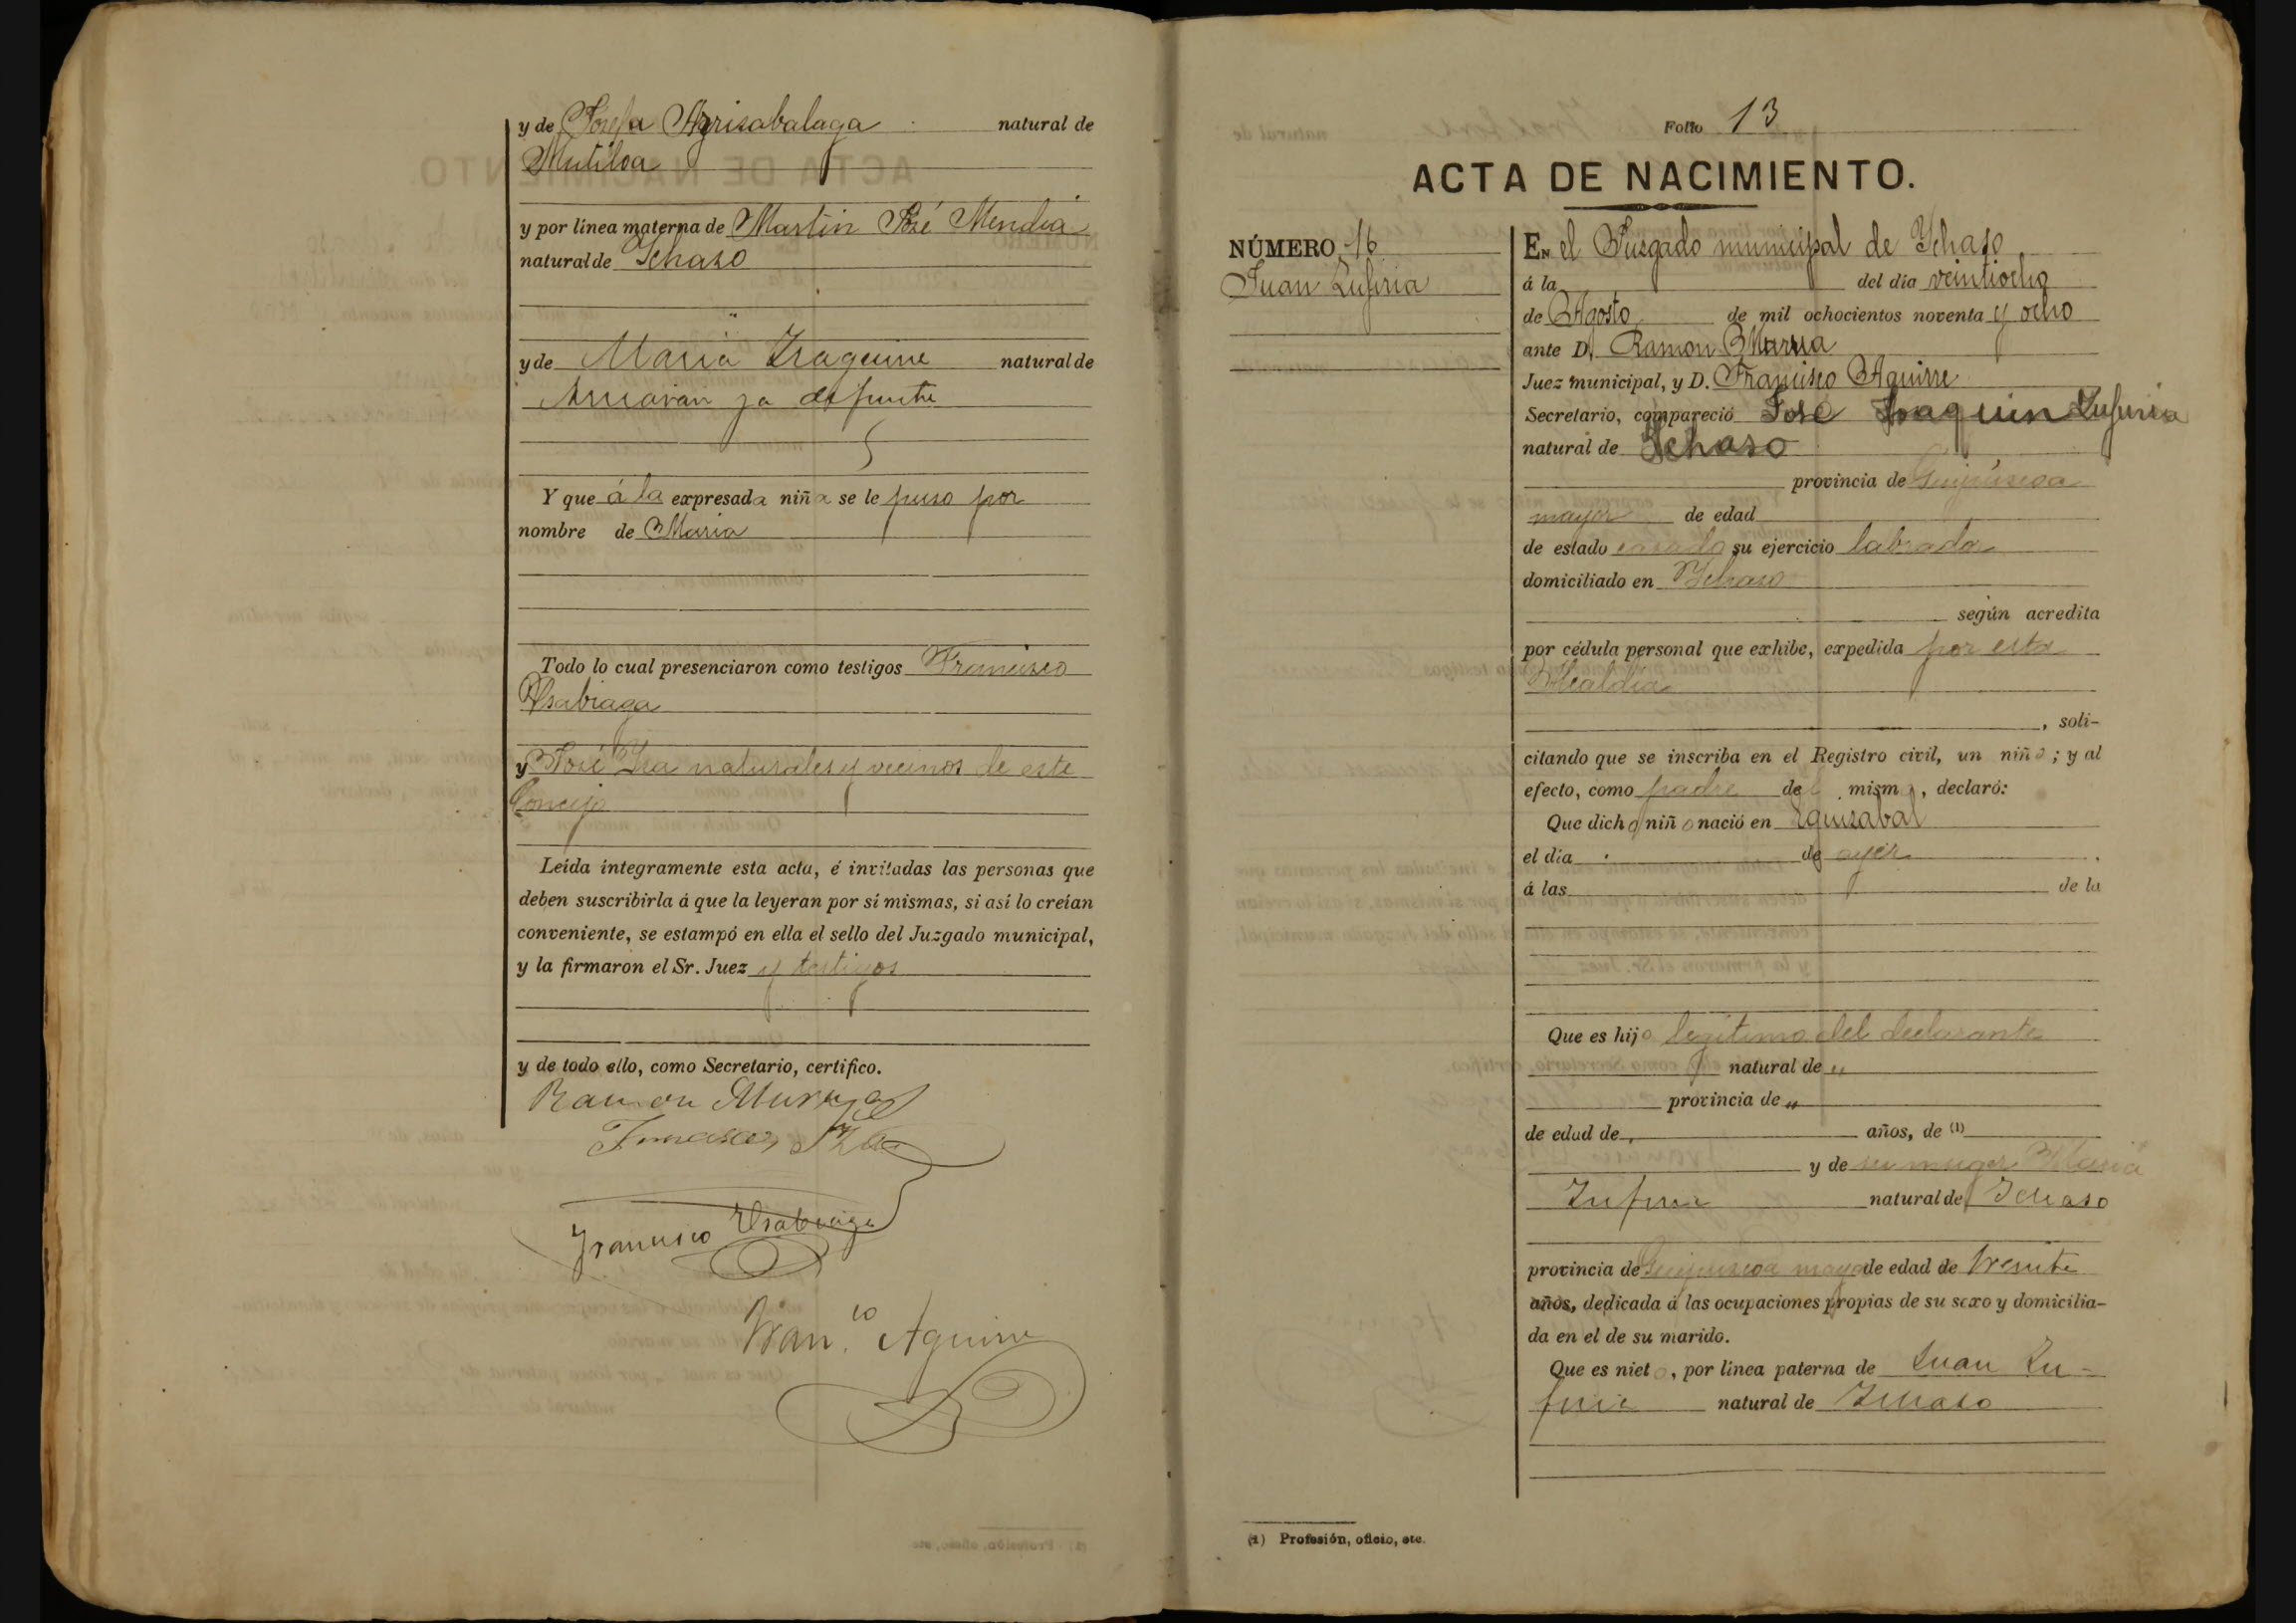 y de Josefa Agrisabalaga natural de
Mutiloa
y por línea materna de Martin José Mendia
natural de Ychaso
y de Maria Yraguirre natural de
Arriaran ya difunta
Y que á la expresada niña se le puso por
nombre de Maria
Todo lo cual presenciaron como testigos Francisco
Ysabiaga
y José Yza naturales y vecinos de este
Concejo
Leída íntegramente esta acta, é invitadas las personas que
deben suscribirla á que la leyeran por sí mismas, si así lo creían
conveniente, se estampó en ella el sello del Juzgado municipal,
y la firmaron el Sr. Juez y testigos
y de todo ello, como Secretario, certifico.
Ramon Murua
Francisco Ysabiaga
Fran.co Aguirre
Folio 13
ACTA DE NACIMIENTO.
NÚMERO 16
Juan Zufiria
EN el Jusgado municipal de Ychaso
á la del día veintiocho
de Agosto de mil ochocientos noventa y ocho
ante D. Ramon Murua
Juez municipal, y D. Francisco Aguirre
Secretario, compareció José Joaquin Zufiria
natural de Ychaso
provincia de Guipúscoa
mayor de edad
de estado casado su ejercicio labrador
domiciliado en Ychaso
según acredita
por cédula personal que exhibe, expedida por esta
Alcaldia
, soli-
citando que se inscriba en el Registro civil, un niño; y al
efecto, como padre del mismo, declaró:
Que dicho niño nació en Eguisabal
el día de ayer
á las de la
Que es hijo legitimo del declarante
natural de „
provincia de „
de edad de años, de (1)
y de su muger Maria
Zufiria natural de Ychaso
provincia de Guipuscoa mayor de edad de treinta
años, dedicada á las ocupaciones propias de su sexo y domicilia-
da en el de su marido.
Que es nieto, por línea paterna de Juan Zu-
firia natural de Ychaso
(1) Profesión, oficio, etc.